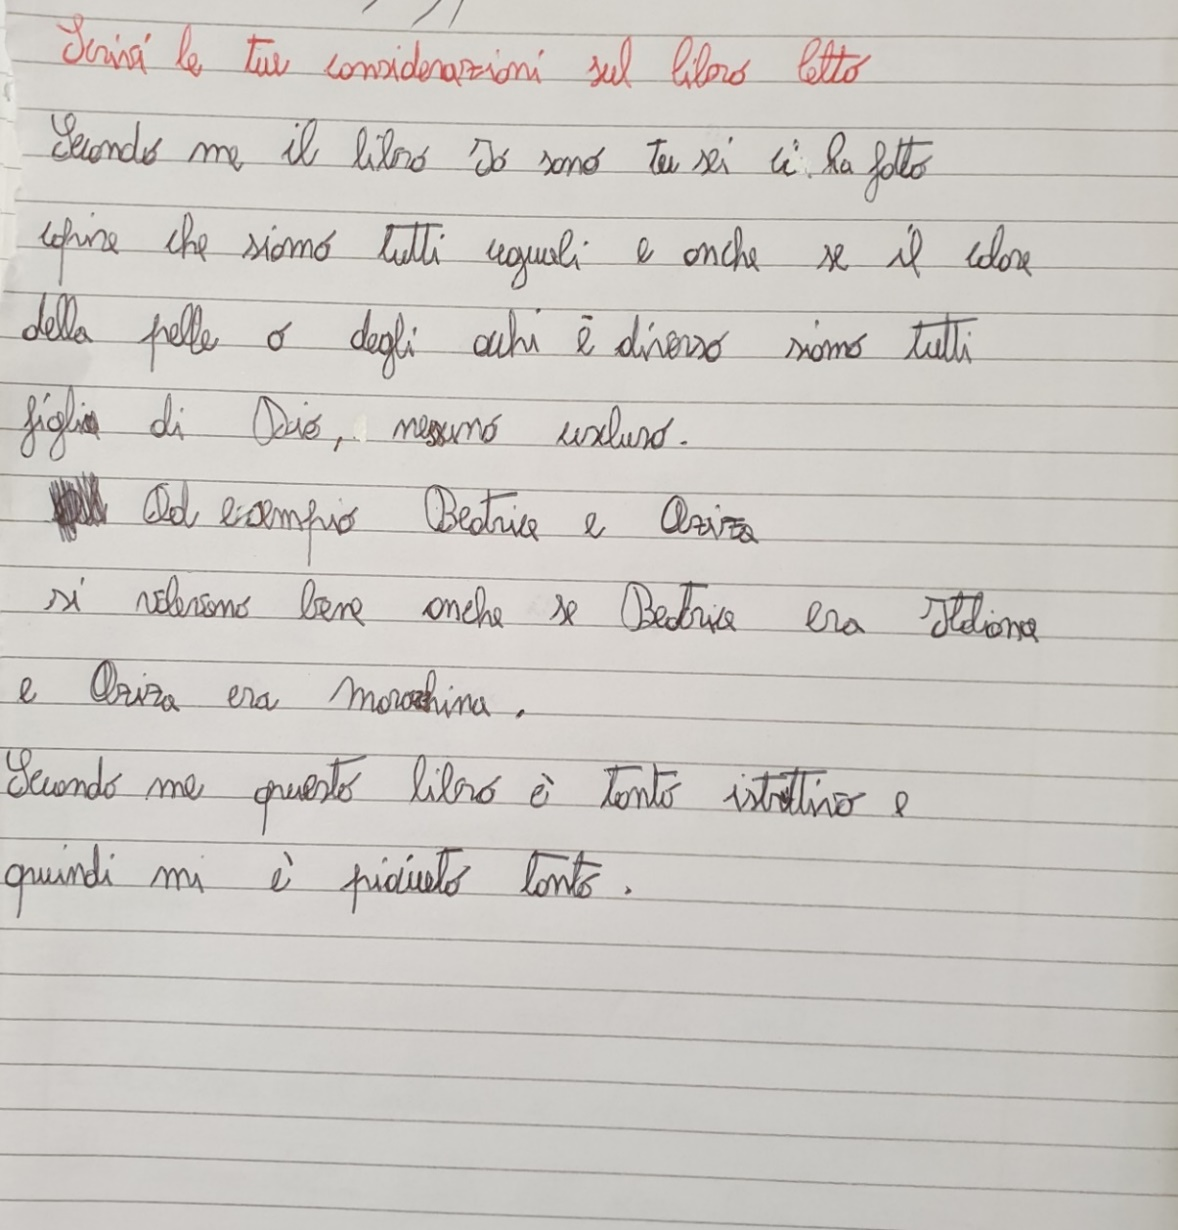 Scrivi le tue considerazioni sul libro letto
Secondo me il libro Io sono tu sei ci ha fatto
capire che siamo tutti uguali e anche se il colore
della pelle o degli occhi è diverso siamo tutti
figli di Dio, nessuno escluso.
Ad esempio Beatrice e Aziza
si volevano bene anche se Beatrice era Italiana
e Aziza era Marocchina.
Secondo me questo libro è tanto istruttivo e
quindi mi è piaciuto tanto.